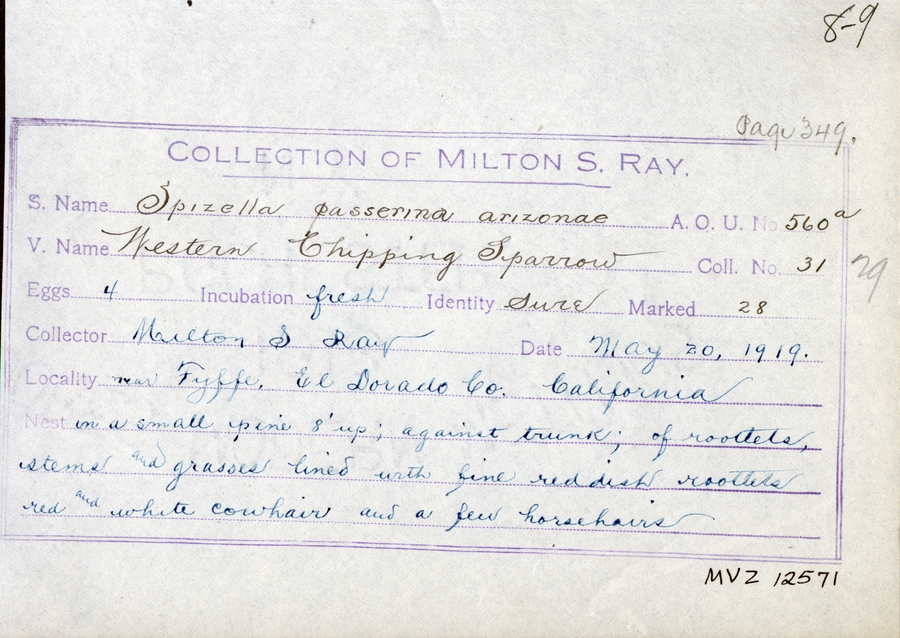 8-9
Page 349.
COLLECTION OF MILTON S. RAY.
S. Name Spizella passerina arizonae A. O. U. No. 560a
V. Name Western Chipping Sparrow Coll. No. 31 29
Eggs 4 Incubation fresh Identity Sure Marked 28
Collector Milton S Ray Date May 20, 1919.
Locality near Fyffe, El Dorado Co. California
Nest in a small pine 8' up; against trunk; of rootlets,
stems and grasses lined with fine reddish rootlets
red and white cowhair and a few horsehairs
MVZ 12571